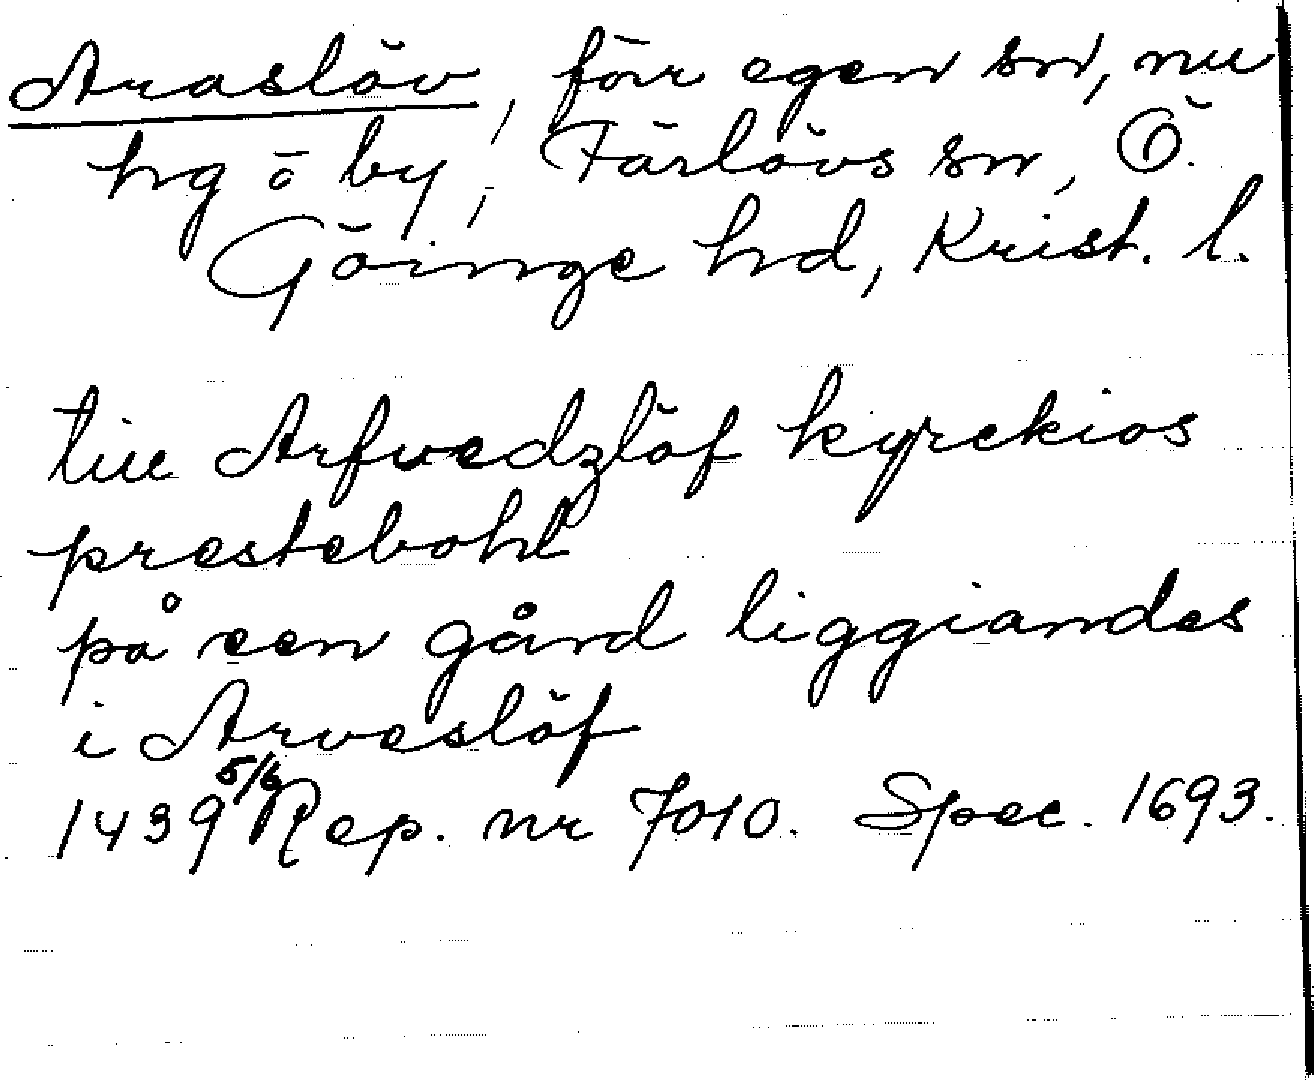 Araslöv, förr egen sn, nu
hg o by, Färlövs sn, Ö.
Göinge hd, Krist. l.
till Arfvedzlöf kyrekios
prestebohl
på een gård liggiandes
i Arveslöf
1439 5/6 Rep. nr 7010. Spec. 1693.